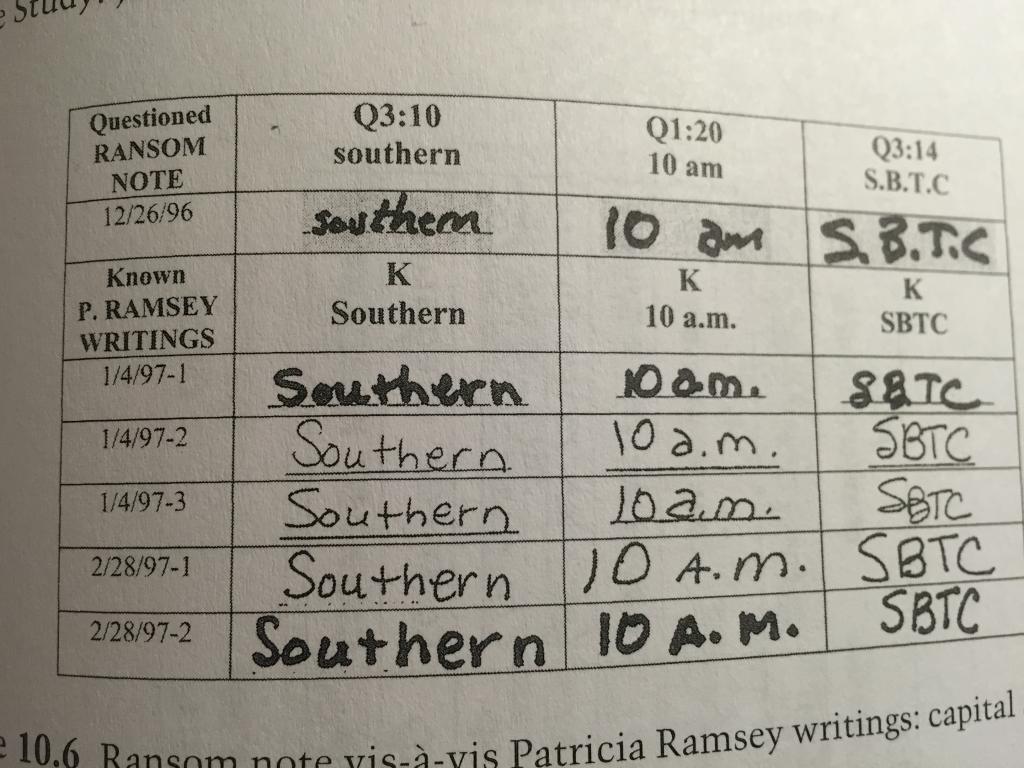 Study:
Questioned RANSOM NOTE
Q3:10 southern
Q1:20 10 am
Q3:14 S.B.T.C
12/26/96
southern
10 am
S.B.T.C
Known P. RAMSEY WRITINGS
K Southern
K 10 a.m.
K SBTC
1/4/97-1
Southern
10 a.m.
SBTC
1/4/97-2
Southern
10 a.m.
SBTC
1/4/97-3
Southern
10 a.m.
SBTC
2/28/97-1
Southern
10 A.m.
SBTC
2/28/97-2
Southern
10 A.M.
SBTC
10.6 Ransom note vis-à-vis Patricia Ramsey writings: capital